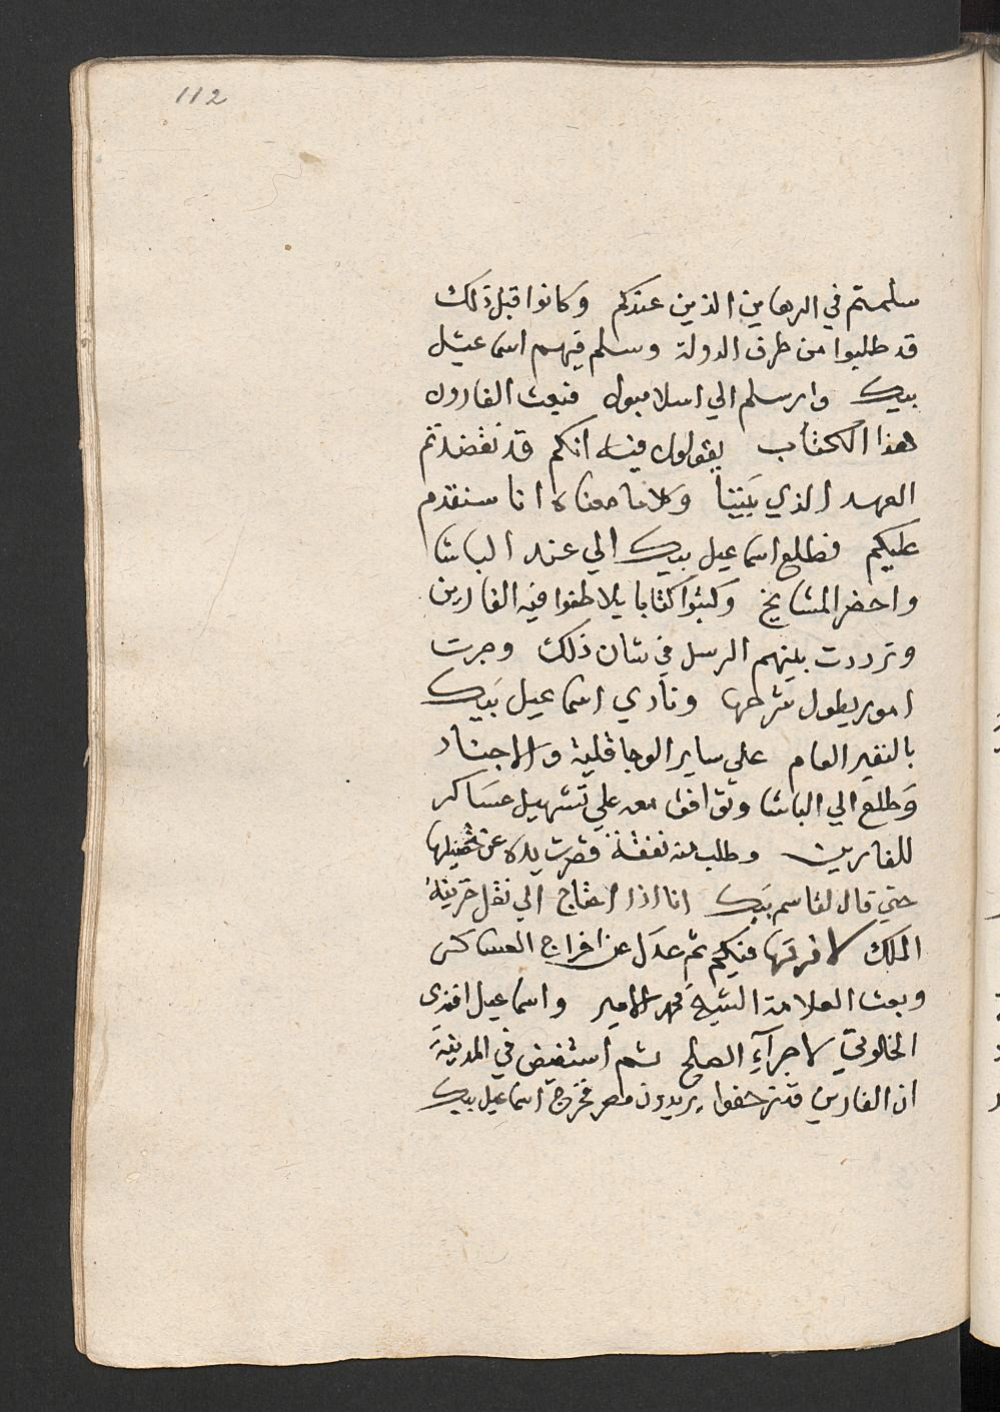 112
سلمتم في الرهاين الذين عندكم وكانوا قبل ذلك
قد طلبوا من طرف الدولة وسلم فيهم اسماعيل
بيك وارسلم الي اسلامبول فبعث الفارون
هذا الكتاب يقولون فيه انكم قد نقضتم
العهد الذي بيننا وكلاما معناه انا سنقدم
عليكم فطلع اسماعيل بيك الي عند الباشا
واحضر المشايخ وكتبوا كتابا يلاطفوا فيه الفارين
وترددت بينهم الرسل في شان ذلك وجرت
امور يطول شرحها ونادي اسماعيل بيك
بالنفير العام علي ساير الوجاقلية والاجناد
وطلع الي الباشا وتوافق معه علي تسهيل عساكر
للفارين وطلب منه نفقة فقصرت يده عن تحصيلها
حتي قال لقاسم بيك انا اذا احتاج الي نقل خزينة
الملك لا فرقتها فيكم ثم عدل عن اخراج العساكر
وبعث العلامة الشيخ محمد الامير واسماعيل افندي
الخلوتي لاجراء الصلح ثم استفيض في المدينة
ان الفارين قد زحفوا يريدون مصر فخرج اسماعيل بيك